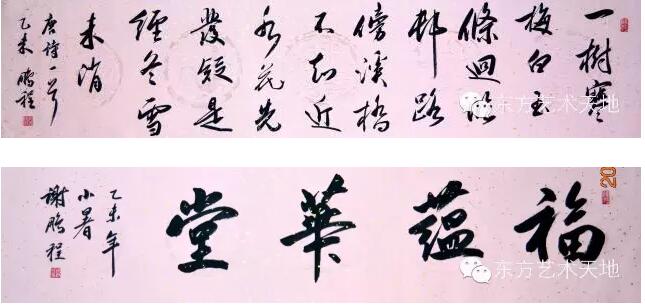 一樹寒
梅白玉
條迴临
邨路
傍溪橋
不知近
水花先
發疑是
經冬雪
未消
唐诗一首
乙未 鹏程
东方艺术天地
福蕴華堂
乙未年
小暑
谢鹏程
东方艺术天地
20